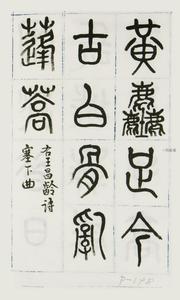 黃塵足今
古白骨亂
蓬蒿
右王昌齡詩
塞下曲